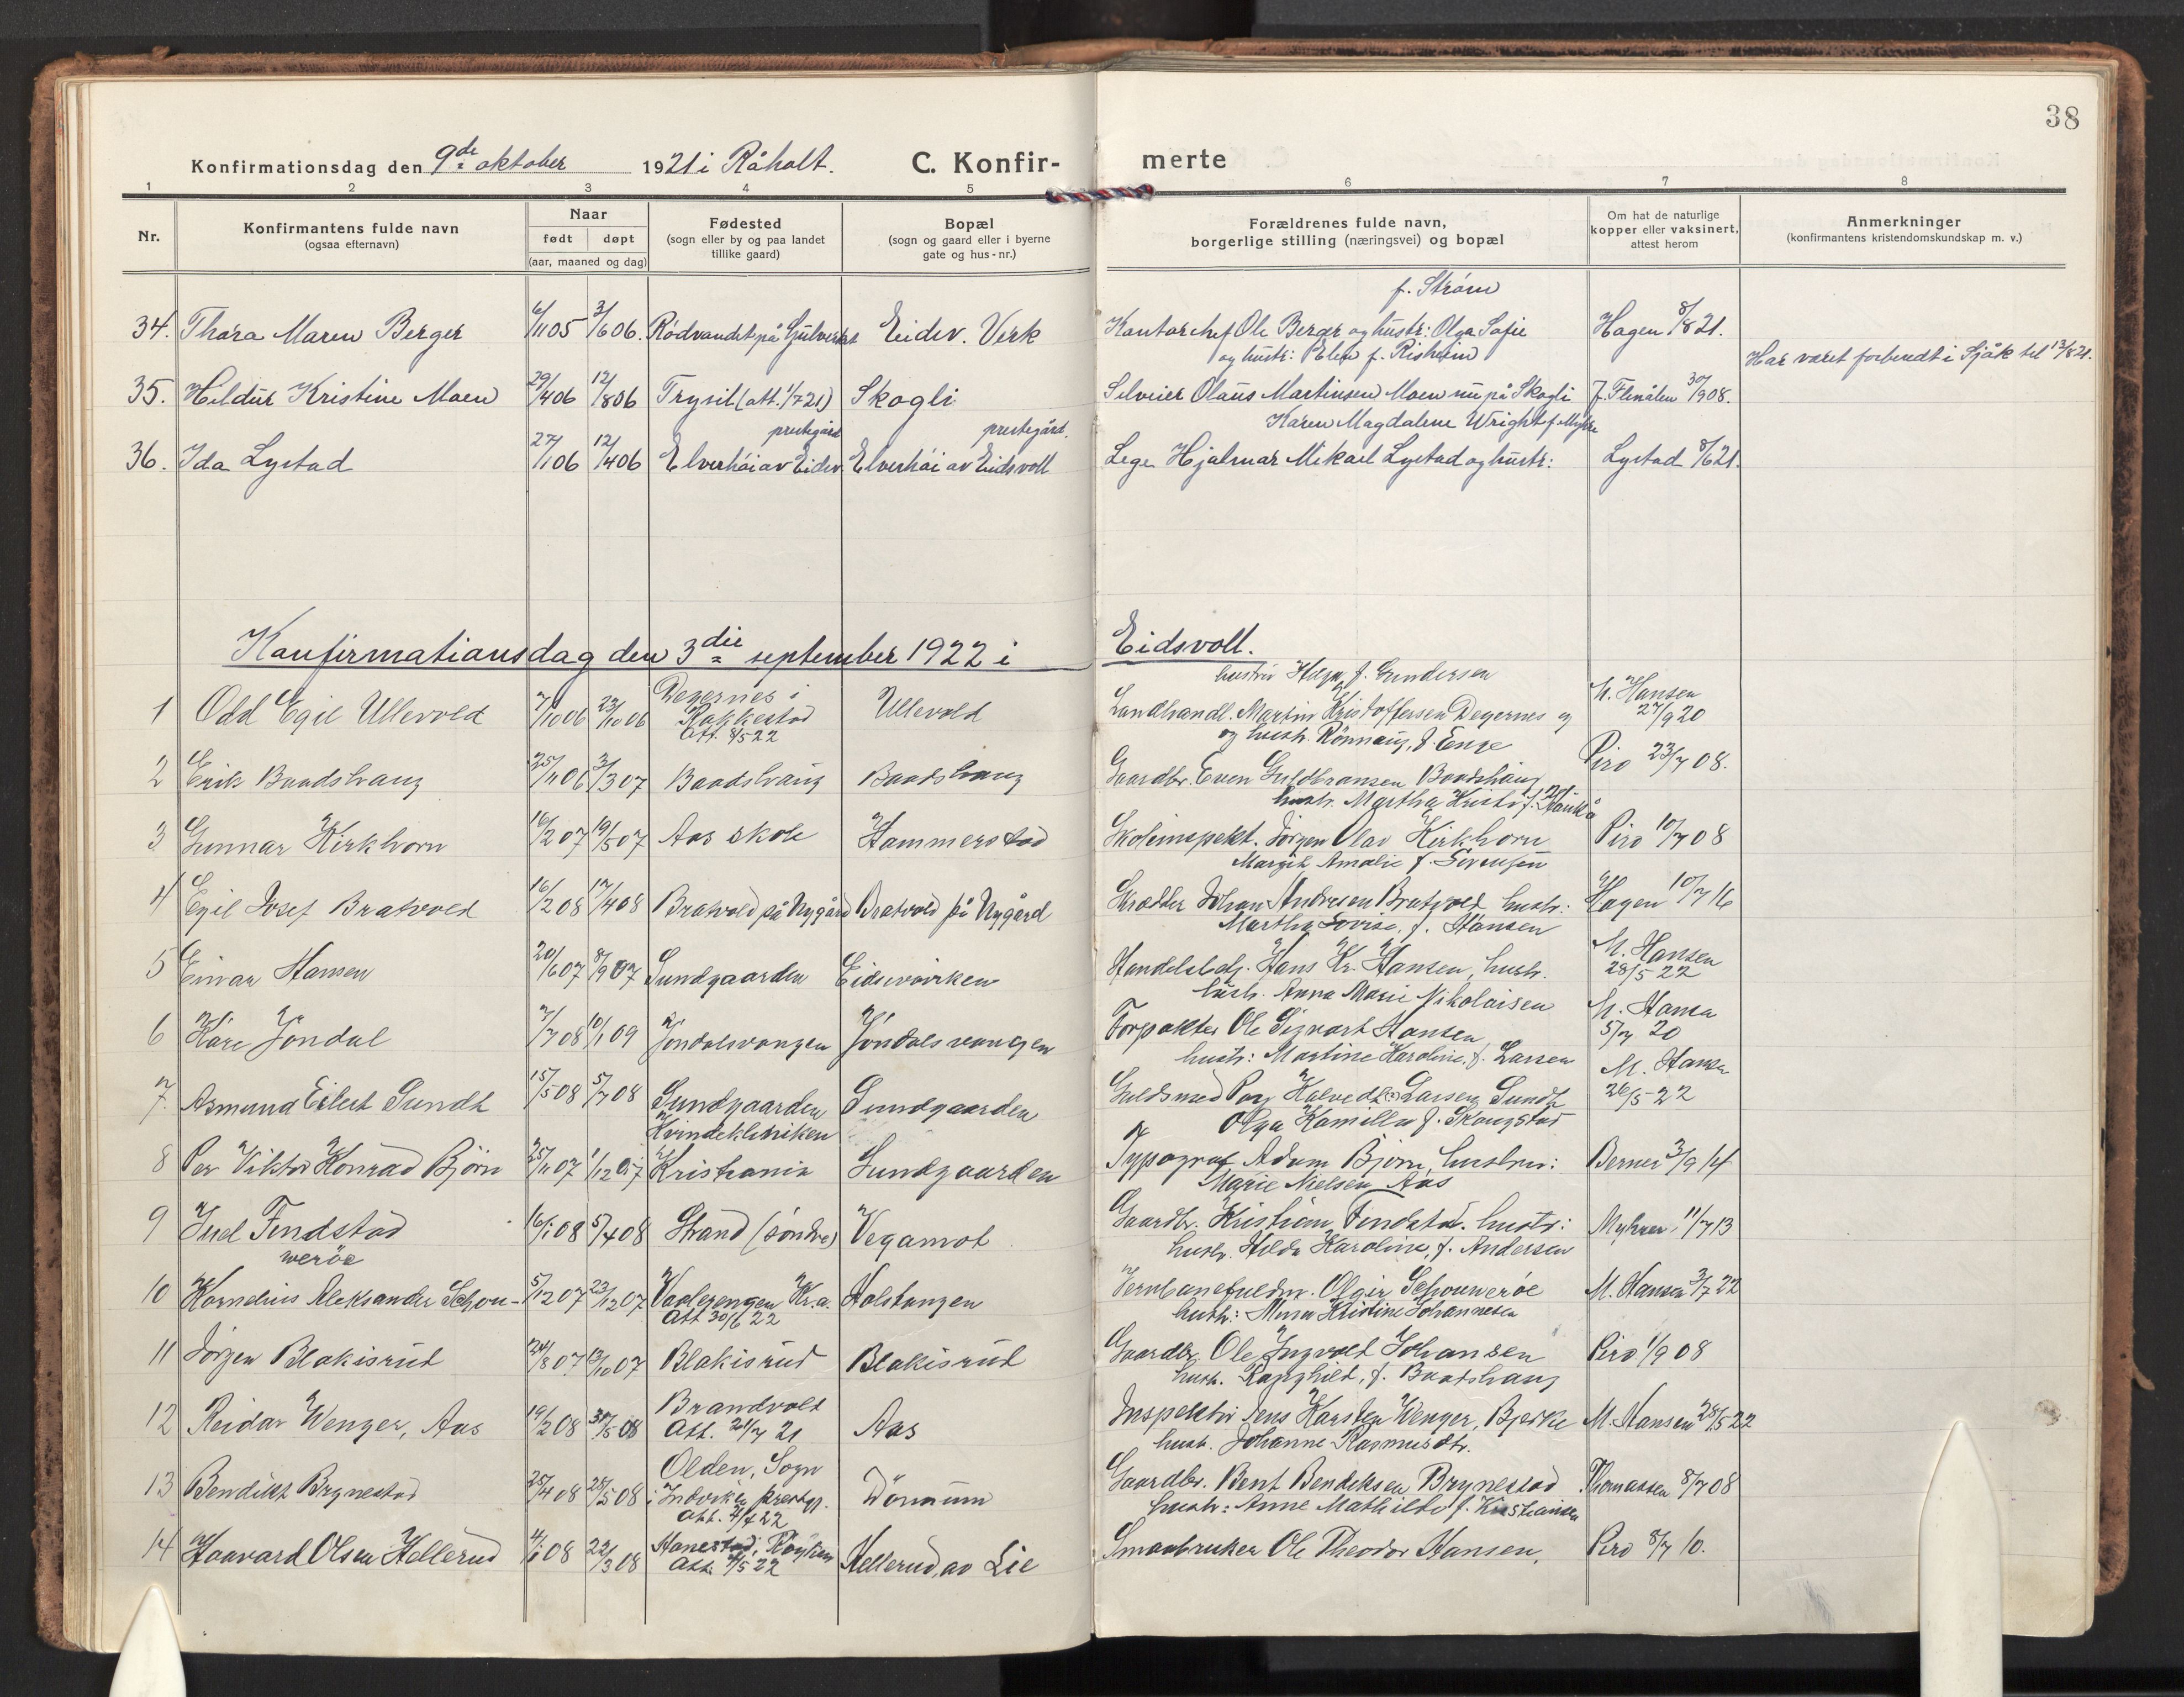 38
Konfirmationsdag den 9de oktober 1921 i Råholt. C. Konfirmerte
1 2 3 4 5 6 7 8
Nr. Konfirmantens fulde navn (ogsaa efternavn) Naar født døpt (aar, maaned og dag) Fødested (sogn eller by og paa landet tillike gaard) Bopæl (sogn og gaard eller i byerne gate og hus-nr.) Forældrenes fulde navn, borgerlige stilling (næringsvei) og bopæl Om hat de naturlige kopper eller vaksinert, attest herom Anmerkninger (konfirmantens kristendomskundskap m. v.)
f. Strøm
34. Thora Maren Berger 6/11 05 3/6 06. Rödvandet på Gulverket Eidsv. Verk Kontorchef Ole Berger og hustr: Olga Sofie Hagen 8/8 21.
og hustr: Elen f. Risheim Har været forbeudt i Sjåk til 13/8 21.
35. Hildur Kristine Moen 29/4 06 12/8 06 Trysil (att. 1/7 21) Skogli Selveier Olaus Martinsen Moen nu på Skogli J. Flenålen 30/9 08.
prestegård prestegård. Karen Magdalene Wright f. Myhre
36. Ida Lystad 27/1 06 12/4 06 Elverhöi av Eidsv. Elverhöi av Eidsvoll Lege Hjalmar Mikael Lystad og hustr: Lystad 8/6 21.
Konfirmationsdag den 3die september 1922 i Eidsvoll.
hustru Helga f. Gundersen
1 Odd Egil Ullevold 7/10 06 23/10 06 Degernes i Rakkestad Att. 8/5 22 Ullevold Landhandl. Martin Kristoffersen Degernes og M. Hansen 27/9 20
og hustr. Rönnaug, f. Enge
2 Erik Baadshaug 25/11 06 3/3 07 Baadshaug Baadshaug Gaardbr. Even Guldbransen Baadshaug Piro 23/7 08.
hustr. Martha Kristi f.
3 Gunnar Kirkhorn 16/2 07 19/5 07 Aas skole Hammerstad Skoleinspekt. Jörgen Olav Kirkhorn Piro 10/7 08
Margit Amalie f. Sörensen
4 Egil Josef Bratvold 16/2 08 17/4 08 Bratvold på Nygård Bratvold på Nygård Skrædder Johan Andresen Bratvold hustr: Hagen 10/7 16
Martha Lovise, f. Hansen
5 Einar Hansen 20/6 07 8/9 07 Sundgaarden Eidsvoirken Handelsbetj. Hans Kr. Hansen, hustr. M. Hansen 28/5 22
hustr. Anna Marie Nikolaisen
6 Kåre Jöndal 7/7 08 10/1 09 Jöndalsvangen Jöndalsvangen Forpakter Ole Sigvart Hansen M. Hansen 5/7 20
hustr: Martine Karoline, f. Larsen
7. Asmund Eilert Sundt 15/5 08 5/7 08 Sundgaarden Sundgaarden Guldsmed Parg Halvedt Larsen Sundt M. Hansen 26/5 22
Kvindekliniken og Olga Kamilla f. Skaugstad
8 Per Viktor Konrad Björn 25/11 07 1/12 07 Kristiania Sundgaarden Typograf Adam Björn, hustru: Berner 3/9 14
Marie Nielsen Aas
9 Juel Tindstad 16/1 08 5/4 08 Strand (söndre) Vegamot Gaardbr. Kristian Tindstad. hustr: Myhrer, 11/7 13
weröe hustr. Hilda Karoline, f. Andersen
10 Kornelius Aleksander Schou- 5/12 07 23/12 07 Vaalerengen Kr.a. Att 30/6 22 Holstangen Jernbanefuldm. Olgir Schouweröe M. Hansen 3/7 22
hustr: Kristine Johannesen
11 Jörgen Blakisrud 24/8 07 13/10 07 Blakisrud Blakisrud Gaardbr. Ole Ingvald Johansen Piro 1/9 08
hustr. Ragnhild, f. Baatshaug
12 Reidar Wenger, Aas 19/2 08 31/5 08 Brandvold Att. 21/7 21 Aas Inspektör Jens Karsten Wenger, Bjerke M. Hansen 28/5 22
hustr. Johanne Rasmusdtr.
13 Bendikt Brynestad 25/4 08 28/5 08 Olden, Sogn i Indviken prestgj. Att. 4/4 22 Dönnum Gaardbr. Bent Bendiksen Brynestad Thomassen 8/7 08
hustr: Anne Mathilde f. Kristiansen
14 Haavard Olsen Hellerud 4/1 08 22/3 08 Hanestad, Röyken Att. 4/5 22 Hellerud, av Lie Smaabruker Ole Theodor Hansen, Piro 8/7 10.